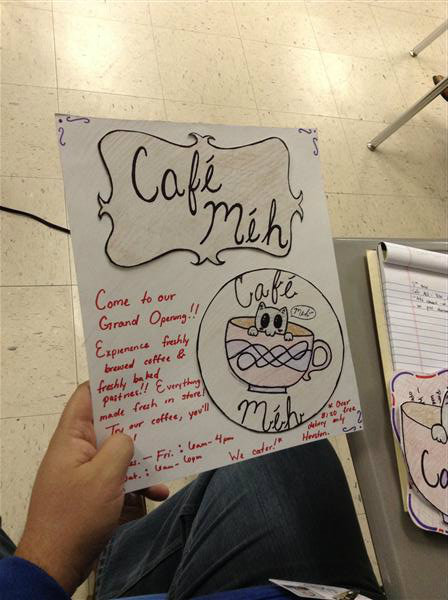 Café
Méh
Come to our
Grand Opening!!
Experience freshly
brewed coffee &
freshly baked
pastries!! Everything
made fresh in store!
Try our coffee, you'll
Fri.: 6am-4pm
6am-6pm
We cater!*
* Over
$150 free
delivery only
Houston.
Café
Meh~
Méh
Ca